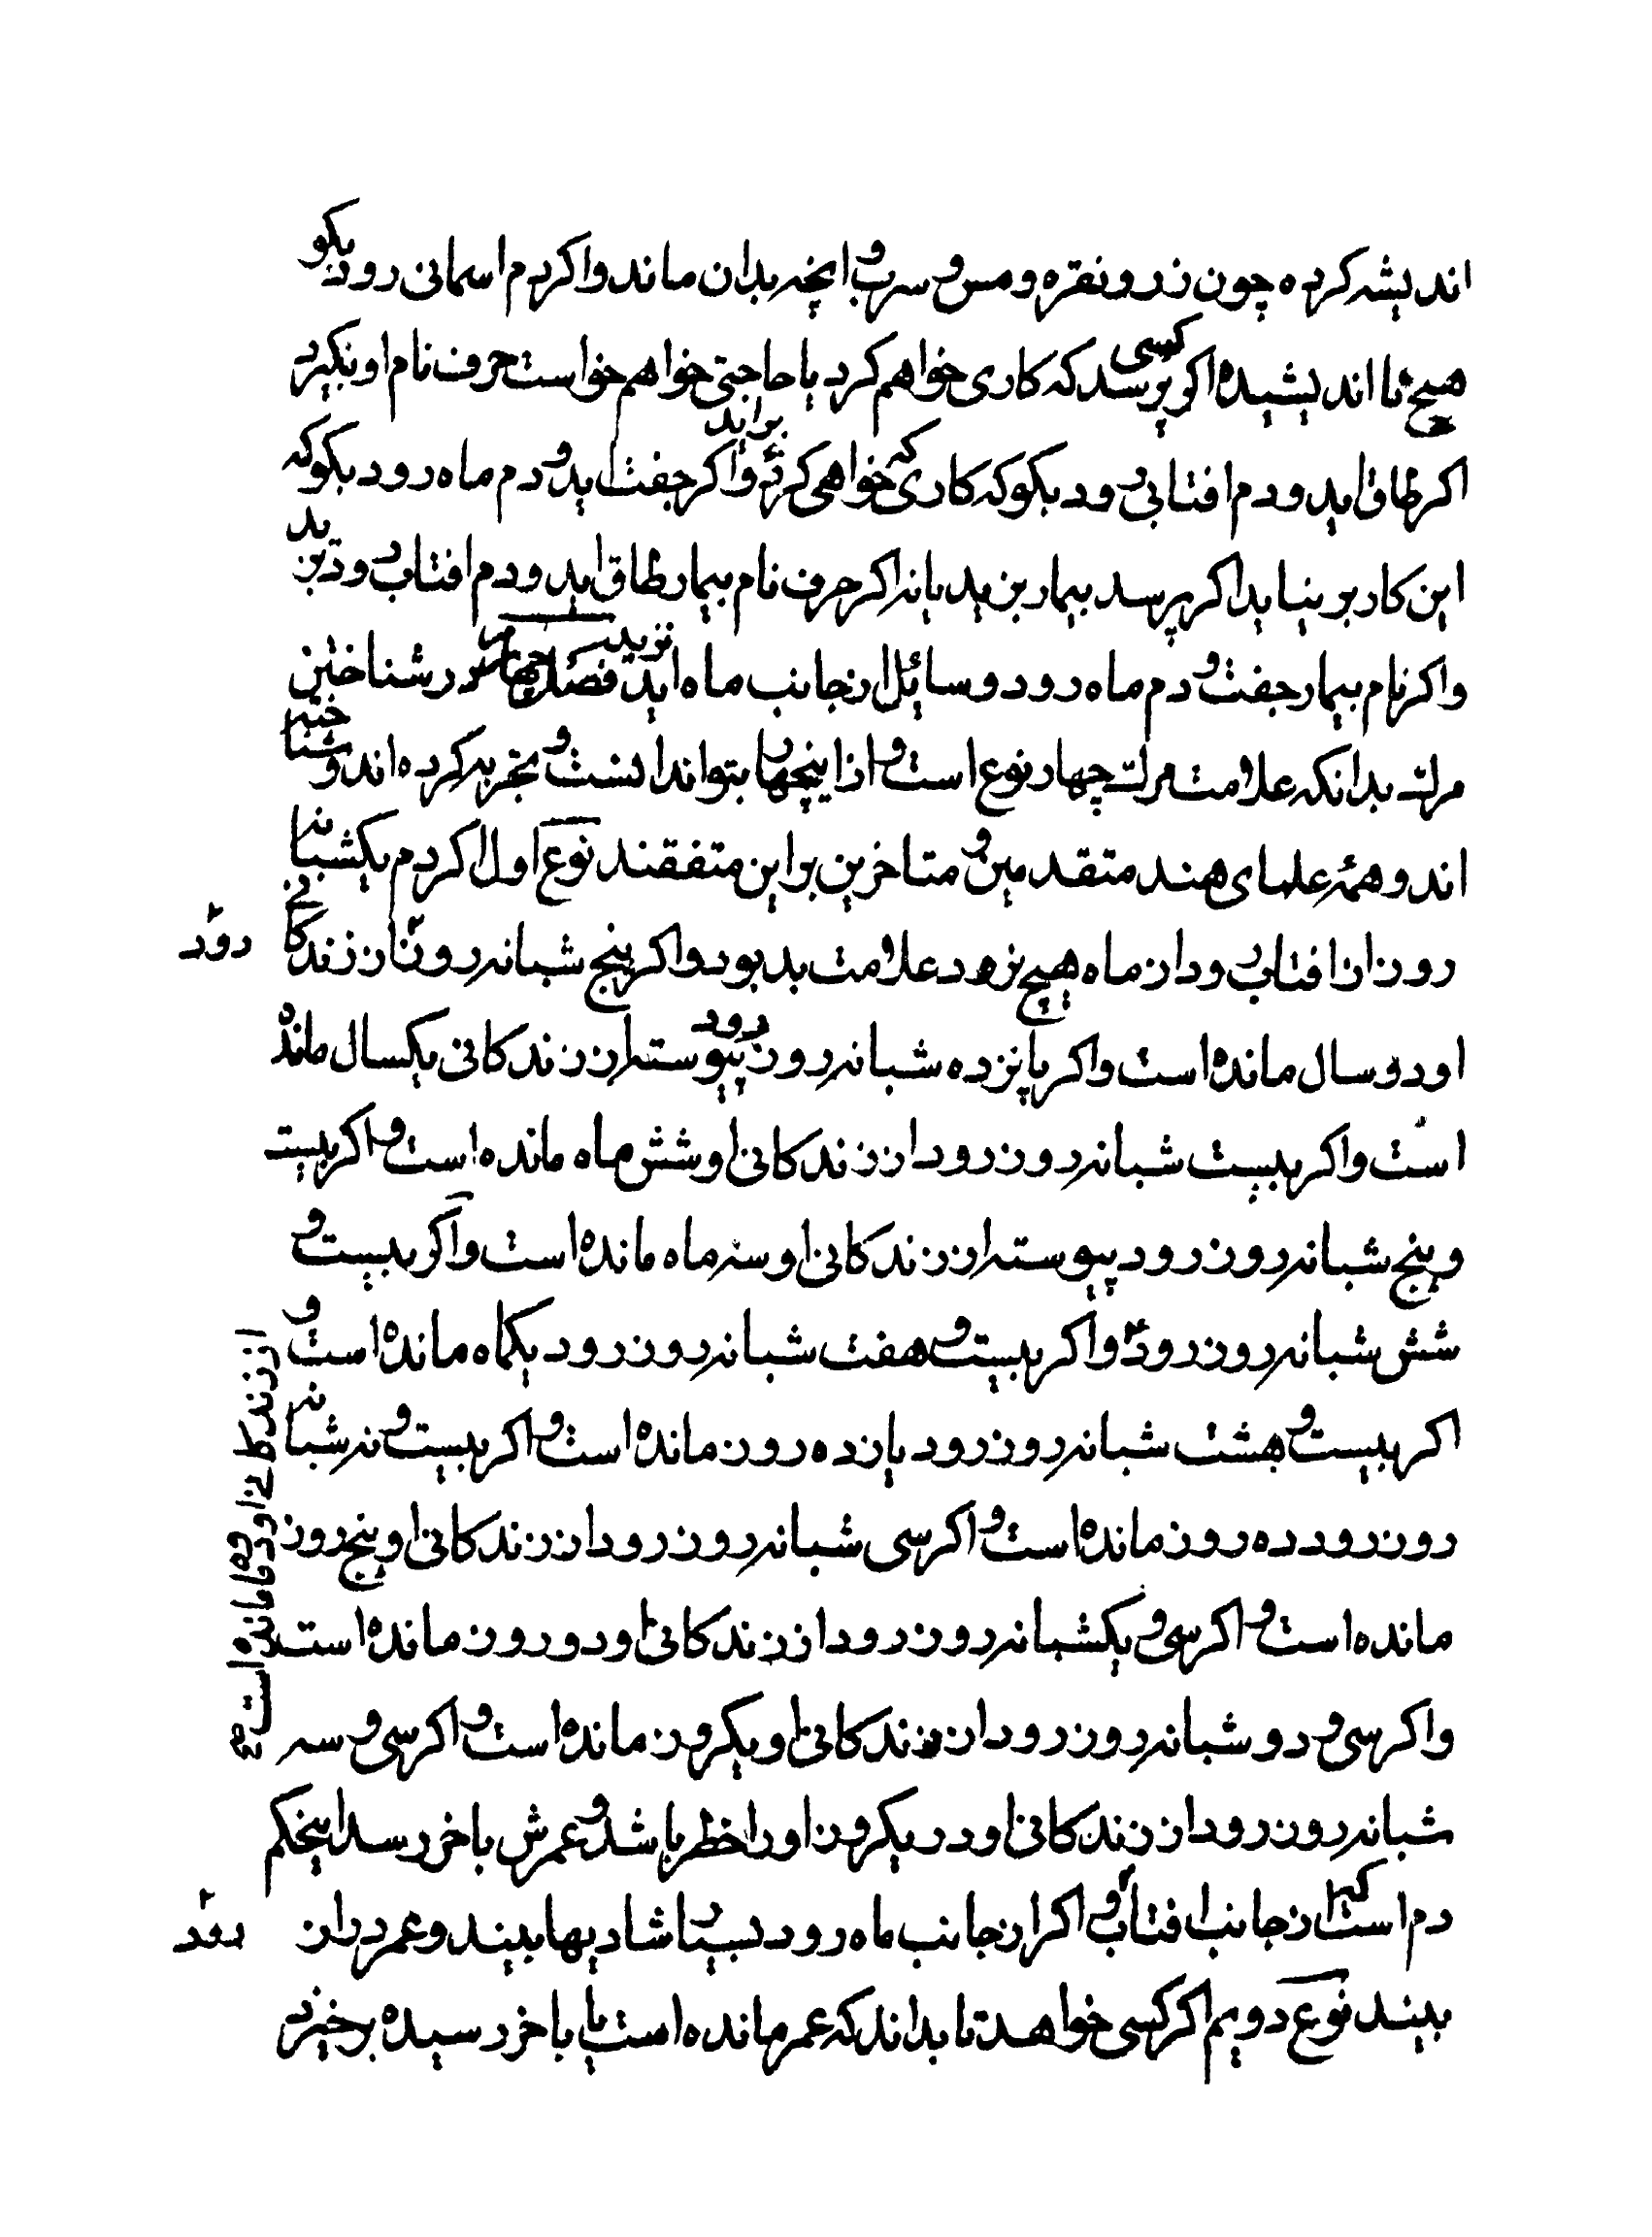 اندیشه کرده چون زر و نقره و مس و سرب و انچه بدان ماند و اکر دم اسمانی رود بکو
هیچ نا اندیشیده اکر کسی پرسد که کاری خواهم کرد یا حاجتی خواهم خواست حرف نام او بکیرد
اکر طاق اید و دم افتابی رود بکو که کاری که خواهی کرد براید و اکر جفت اید و دم ماه رود بکو که
این کار بر نیاید اکر پرسد بیمار بزید یا نه اکر حرف نام بیمار طاق اید و دم افتاب رود بزید
و اکر نام بیمار جفت و دم ماه رود و سائل از جانب ماه اید نزید فصل چهارم در شناختن
مرک بدانکه علامت مرک چهار نوع است و از اینچهار بتواند انست و تجربه کرده اند و شناخته
اند و همهٔ علمای هند متقدمین و متاخرین بر این متفقند نوع اول اکر دم یکشبانه
روز از افتاب رود از ماه هیچ نرود علامت بد بود و اکر پنج شبانه روز از زندکانی
رود
او دو سال مانده است و اکر پانزده شبانه روز رود پیوسته از زندکانی یکسال مانده
است و اکر بیست شبانه روز رود از زندکانی او شش ماه مانده است و اکر بیست
و پنج شبانه روز رود پیوسته از زندکانی او سه ماه مانده است و اکر بیست و
شش شبانه روز رود و اکر بیست و هفت شبانه روز رود یکماه مانده است و
از زندکانی او دو ماه مانده است صح
اکر بیست و هشت شبانه روز رود پانزده روز مانده است و اکر بیست و نه شبانه
روز رود ده روز مانده است و اکر سی شبانه روز رود از زندکانی او پنج روز
مانده است و اکر سی و یکشبانه روز رود از زندکانی او دو روز مانده است
و اکر سی و دو شبانه روز رود از زندکانی او یکروز مانده است و اکر سی و سه
شبانه روز رود از زندکانی او در یکروز او را خطر باشد و عمرش باخر رسد اینحکم
دم است کز جانب افتاب و اکر از جانب ماه رود بسیار شادیها بیند و عمر دراز
رود
بیند نوع دویم اکر کسی خواهد تا بداند که عمر مانده است یا باخر رسیده برخیزد